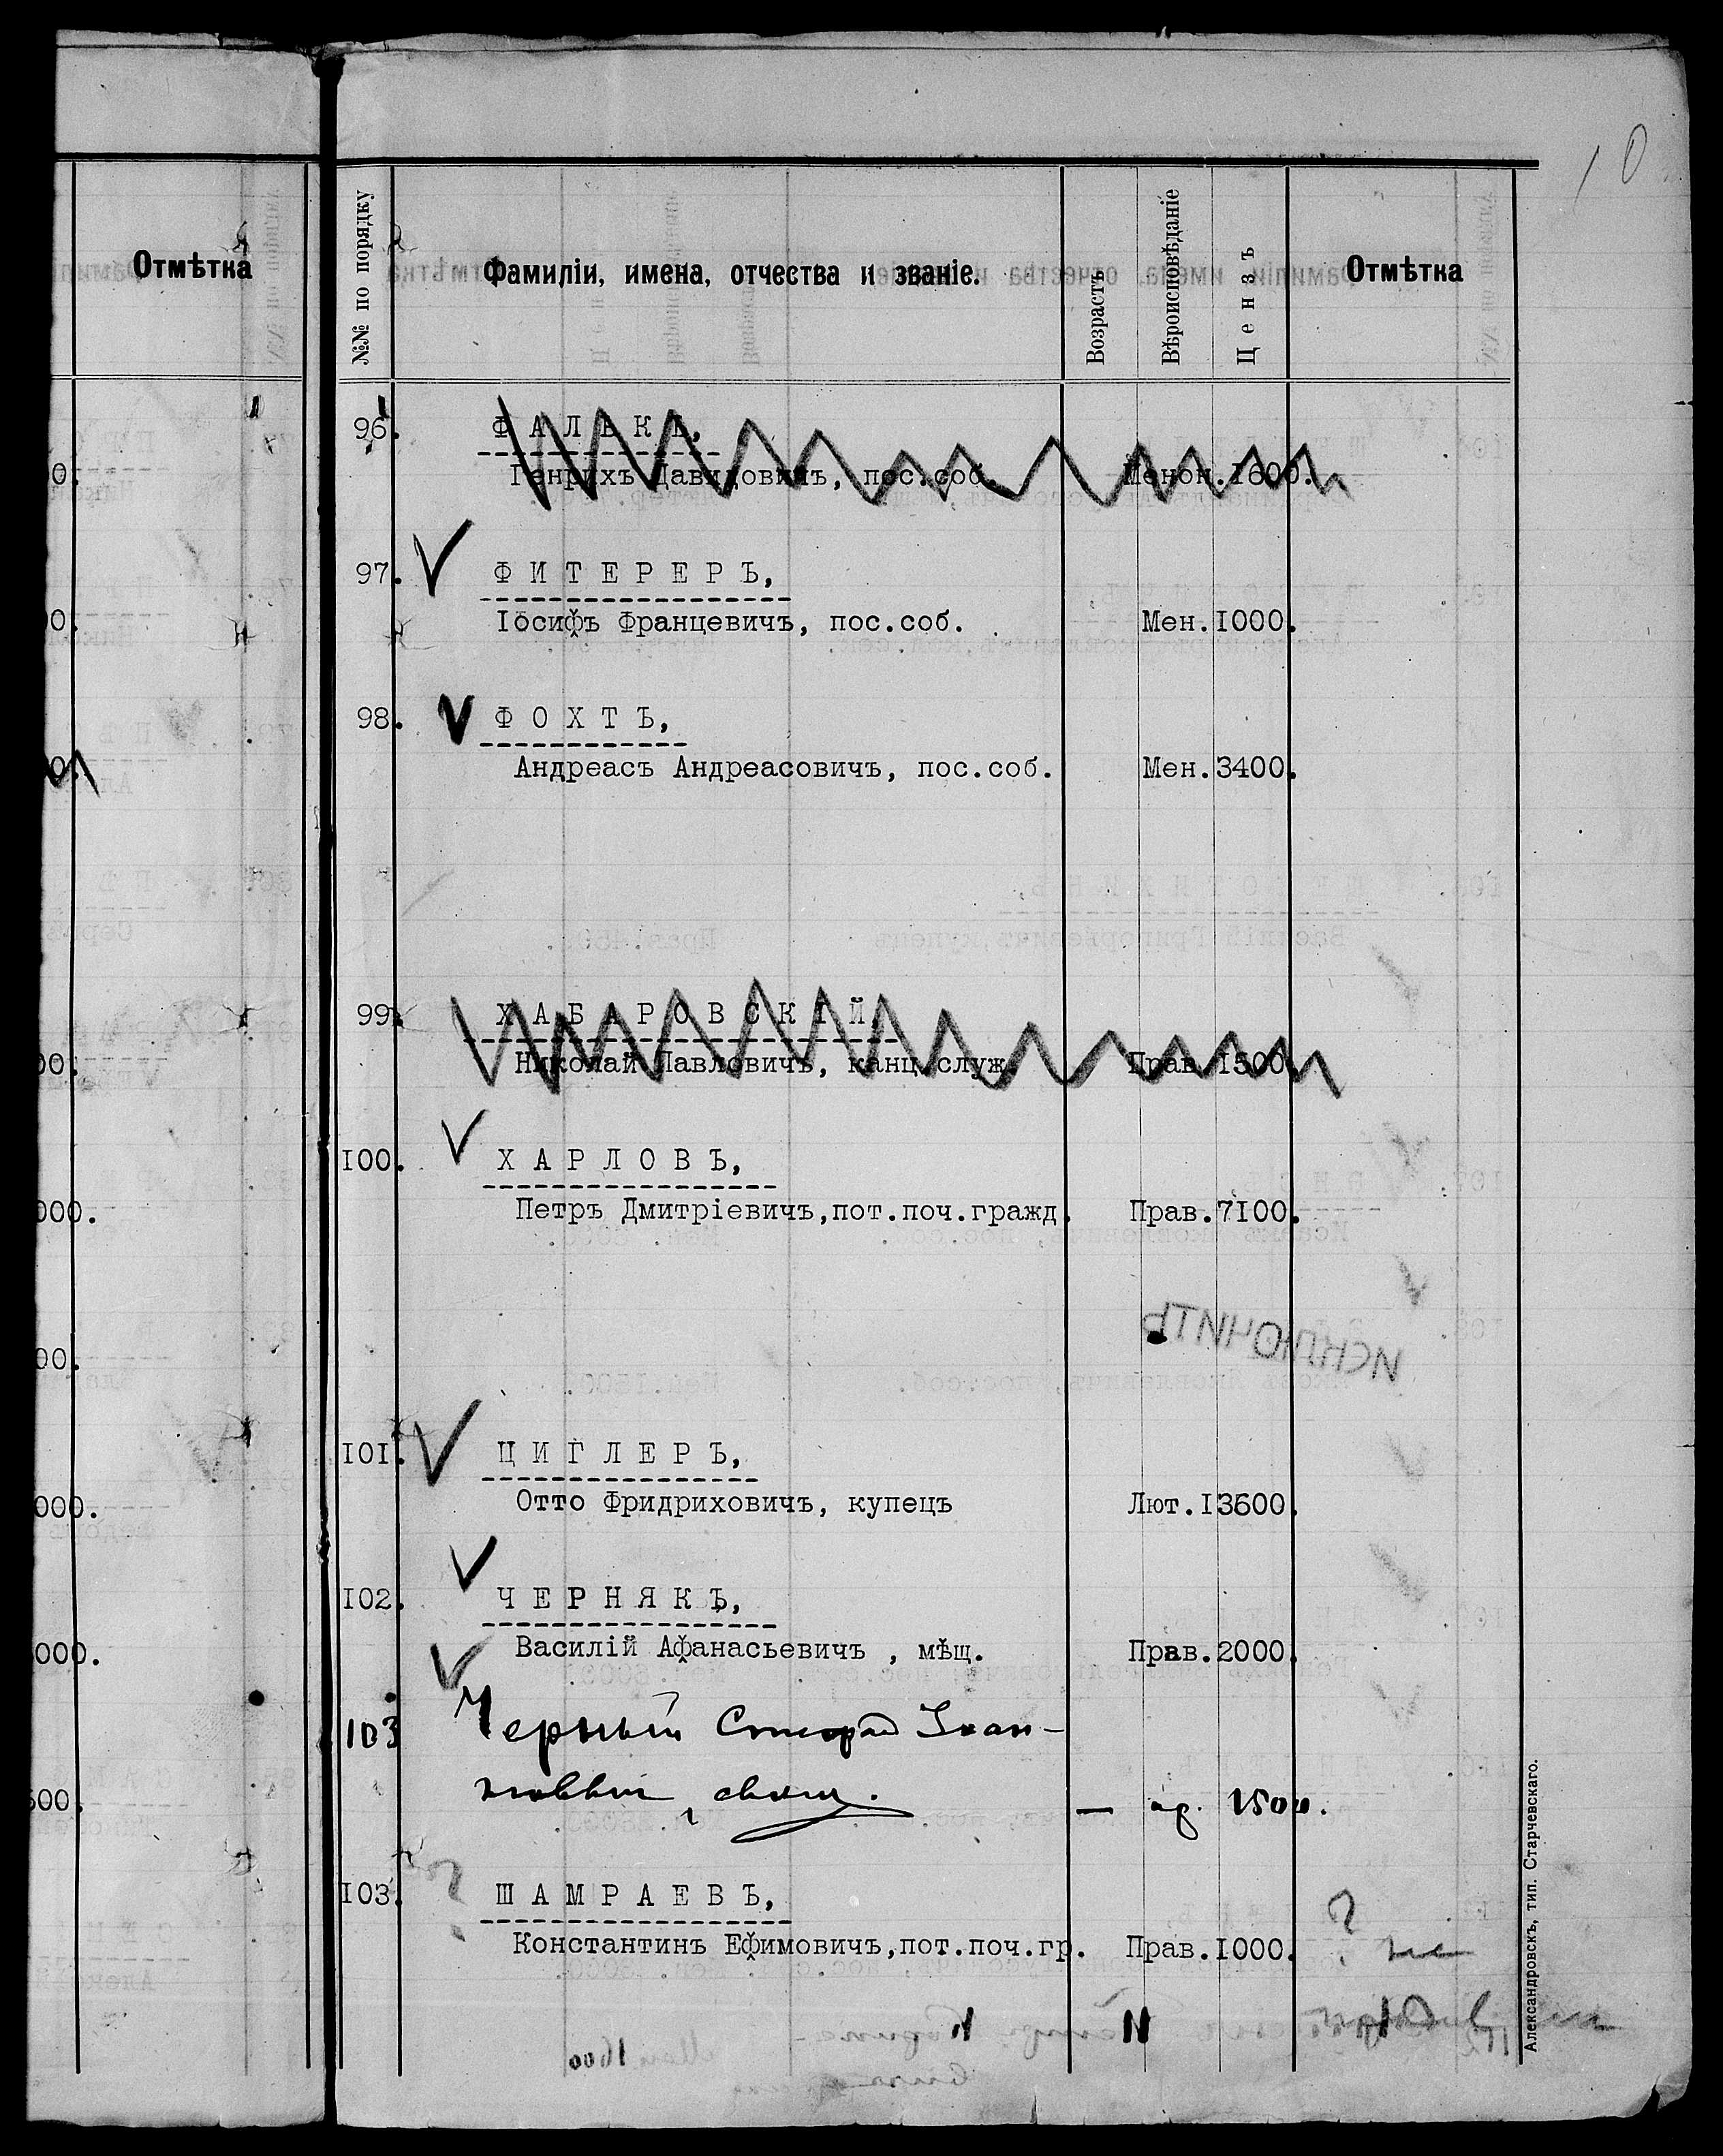 10
Отмѣтка
№№ по порядку
Фамиліи, имена, отчества и званіе.
Возрастъ
Вѣроисповѣданіе
Цензъ
Отмѣтка
96. ФАЛЬКЪ,
Генрихъ Давидовичъ, пос.соб. Менон.1600.
97. ФИТЕРЕРЪ,
Іосифъ Францевичъ, пос.соб. Мен.1000.
98. ФОХТЪ,
Андреасъ Андреасовичъ, пос.соб. Мен.3400.
99. ХАБАРОВСКІЙ,
Николай Павловичъ, канц.служ. Прав.1500.
100. ХАРЛОВЪ,
Петръ Дмитріевичъ,пот.поч.гражд. Прав.7100.
101. ЦИГЛЕРЪ,
Отто Фридриховичъ, купецъ Лют.13600.
102. ЧЕРНЯКЪ,
Василій Афанасьевичъ , мѣщ. Прав.2000.
103 Черный
— 1500.
103. ШАМРАЕВЪ,
Константинъ Ефимовичъ,пот.поч.гр. Прав.1000.
?
не
Александровскъ, тип. Старчевскаго.